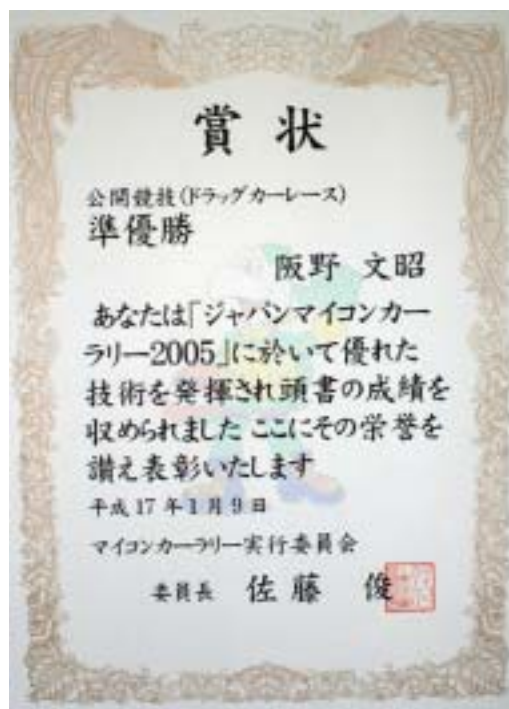 賞状
公開競技(ドラッグカーレース)
準優勝
阪野 文昭
あなたは「ジャパンマイコンカー
ラリー2005」に於いて優れた
技術を発揮され頭書の成績を
収められました ここにその栄誉を
讃え表彰いたします
平成17年1月9日
マイコンカーラリー実行委員会
委員長 佐藤 俊